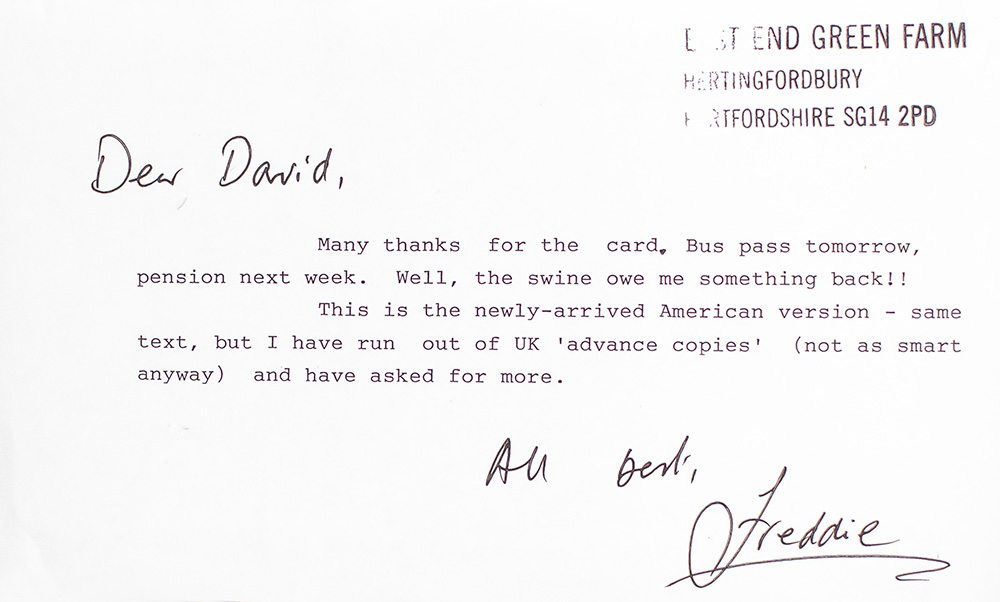 EAST END GREEN FARM
HERTINGFORDBURY
HERTFORDSHIRE SG14 2PD
Dear David,
Many thanks for the card. Bus pass tomorrow,
pension next week. Well, the swine owe me something back!!
This is the newly-arrived American version - same
text, but I have run out of UK 'advance copies' (not as smart
anyway) and have asked for more.
All best,
Freddie